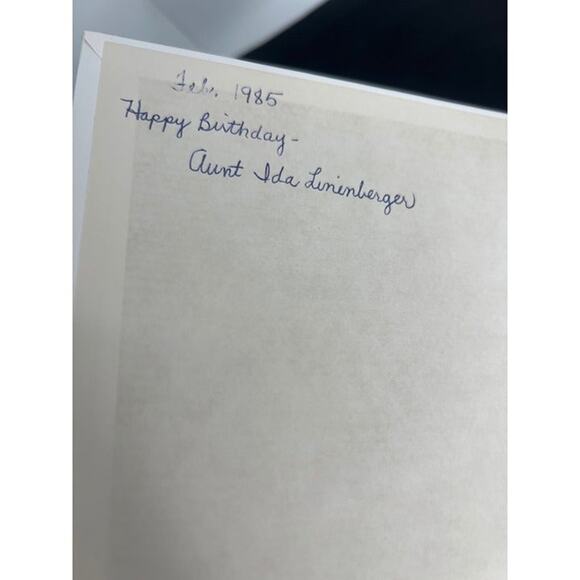 Feb. 1985
Happy Birthday -
Aunt Ida Linenberger